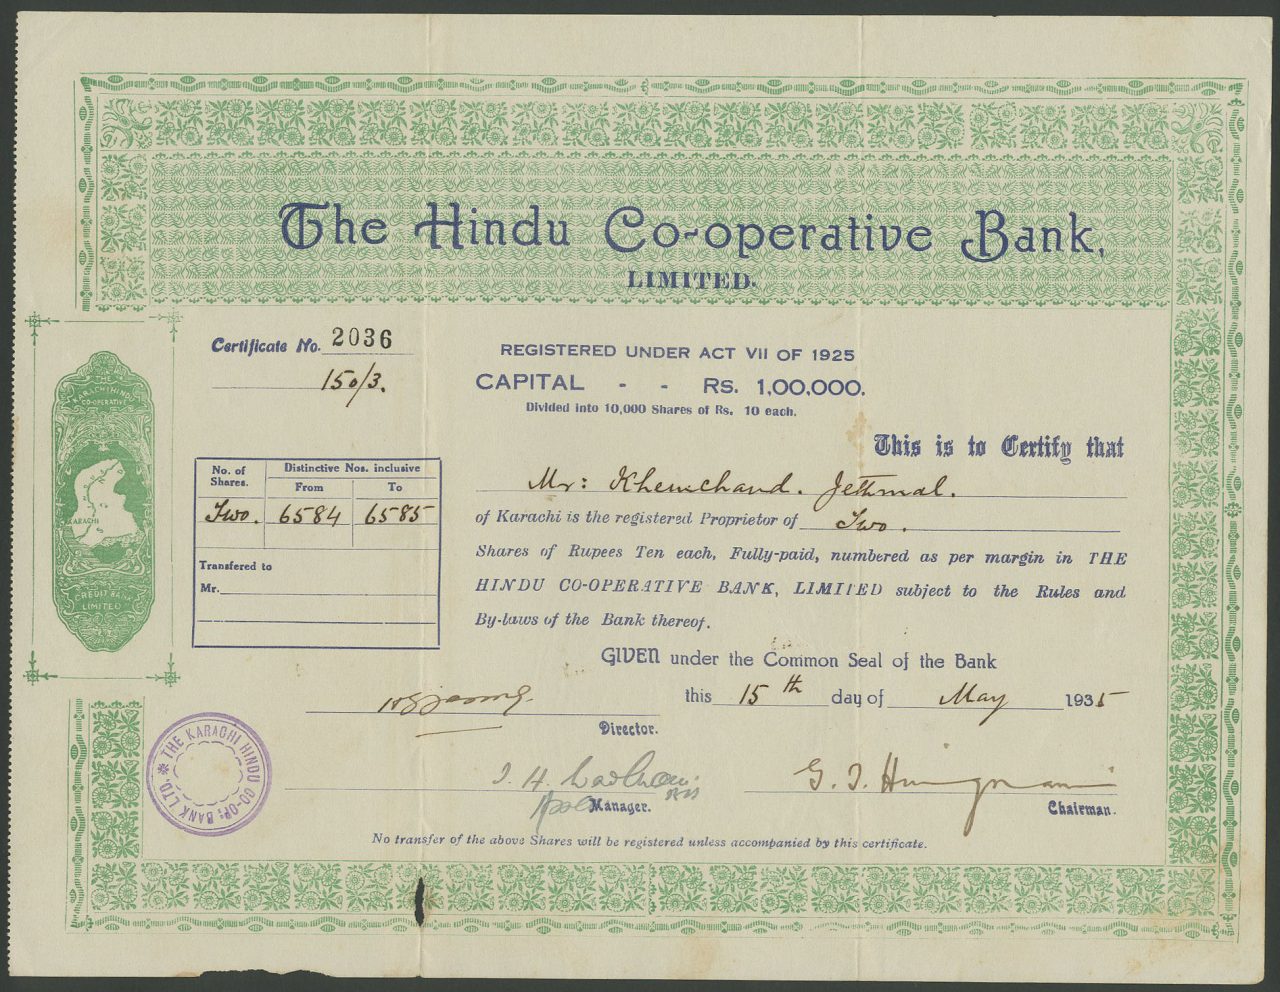 The Hindu Co-operative Bank,
LIMITED.
Certificate No. 2036
150/3.
REGISTERED UNDER ACT VII OF 1925
CAPITAL - - RS. 1,00,000.
Divided into 10,000 Shares of Rs. 10 each.
This is to Certify that
Mr: Khemchand. Jethmal.
of Karachi is the registered Proprietor of Two.
Shares of Rupees Ten each, Fully-paid, numbered as per margin in THE
HINDU CO-OPERATIVE BANK, LIMITED subject to the Rules and
By-laws of the Bank thereof.
No. of Shares.
Distinctive Nos. inclusive
From To
Two. 6584 6585
Transfered to
Mr.
THE
KARACHI HINDU
CO-OPERATIVE
KARACHI
CREDIT BANK
LIMITED
GIVEN under the Common Seal of the Bank
this 15th day of May 1935
Director.
Manager.
Chairman.
THE KARACHI HINDU CO-OP: BANK LTD.
No transfer of the above Shares will be registered unless accompanied by this certificate.